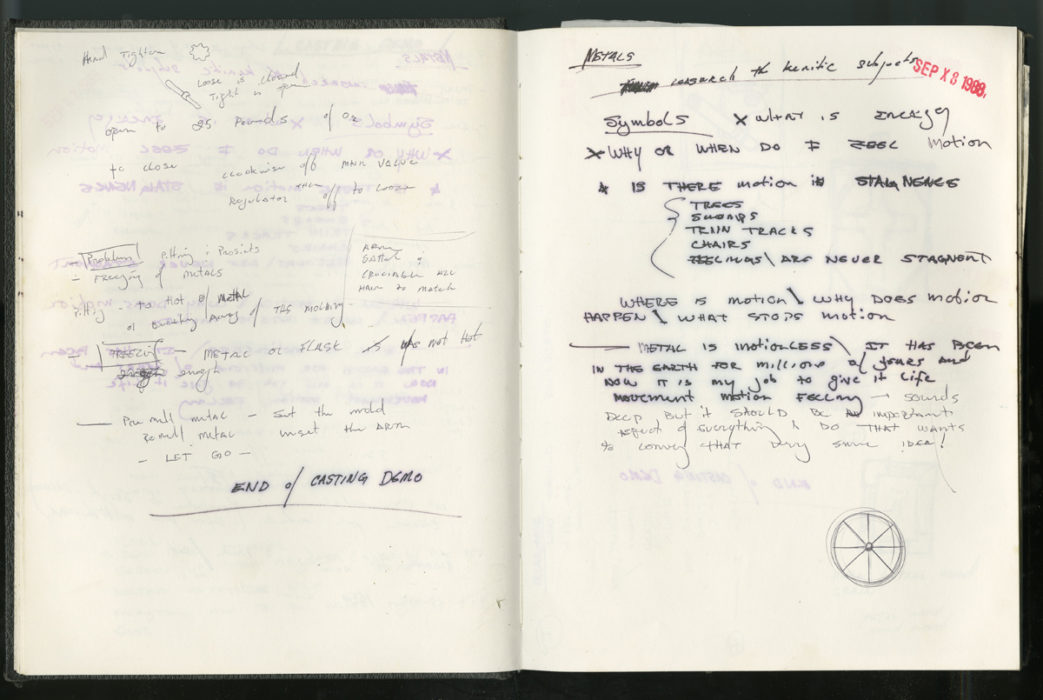 Hand Tighten
Loose is closed
Tight is open
open to 25 Pounds of O2
to close clockwise off MAIN VALVE
Regulator then off to Loose
Problem Pitting :
- FREEZING of METALS
Pitting - too Hot of METAL
or of THE MOLDING
ARM
CRUCIABLE
HAIR to match
- FREEZING - METAL or FLASK was not Hot
enough
Pre melt metal - Set the mold
Remelt metal unset the ARM
- LET GO -
END of CASTING DEMO
METALS
research the kenitic subjects
SEP X 8 1988
Symbols X WHAT IS ENERGY
X WHY OR WHEN DO I FEEL Motion
IS THERE motion in STAGNENCE
TREES
SWAMPS
TRIIN TRACKS
CHAIRS
FEELINGS \ ARE NEVER STAGNENT
WHERE IS MOTION \ WHY DOES MOTION
HAPPEN \ WHAT STOPS MOTION
METAL IS MOTIONLESS \ IT HAS BEEN
IN THE EARTH FOR MILLIONS of years and
NOW IT IS my job to give it Life
MOVEMENT MOTION FEELING → SOUNDS
DEEP BUT it SHOULD BE AN important
aspect of Everything I DO THAT WANTS
to convey THAT very same IDEA!